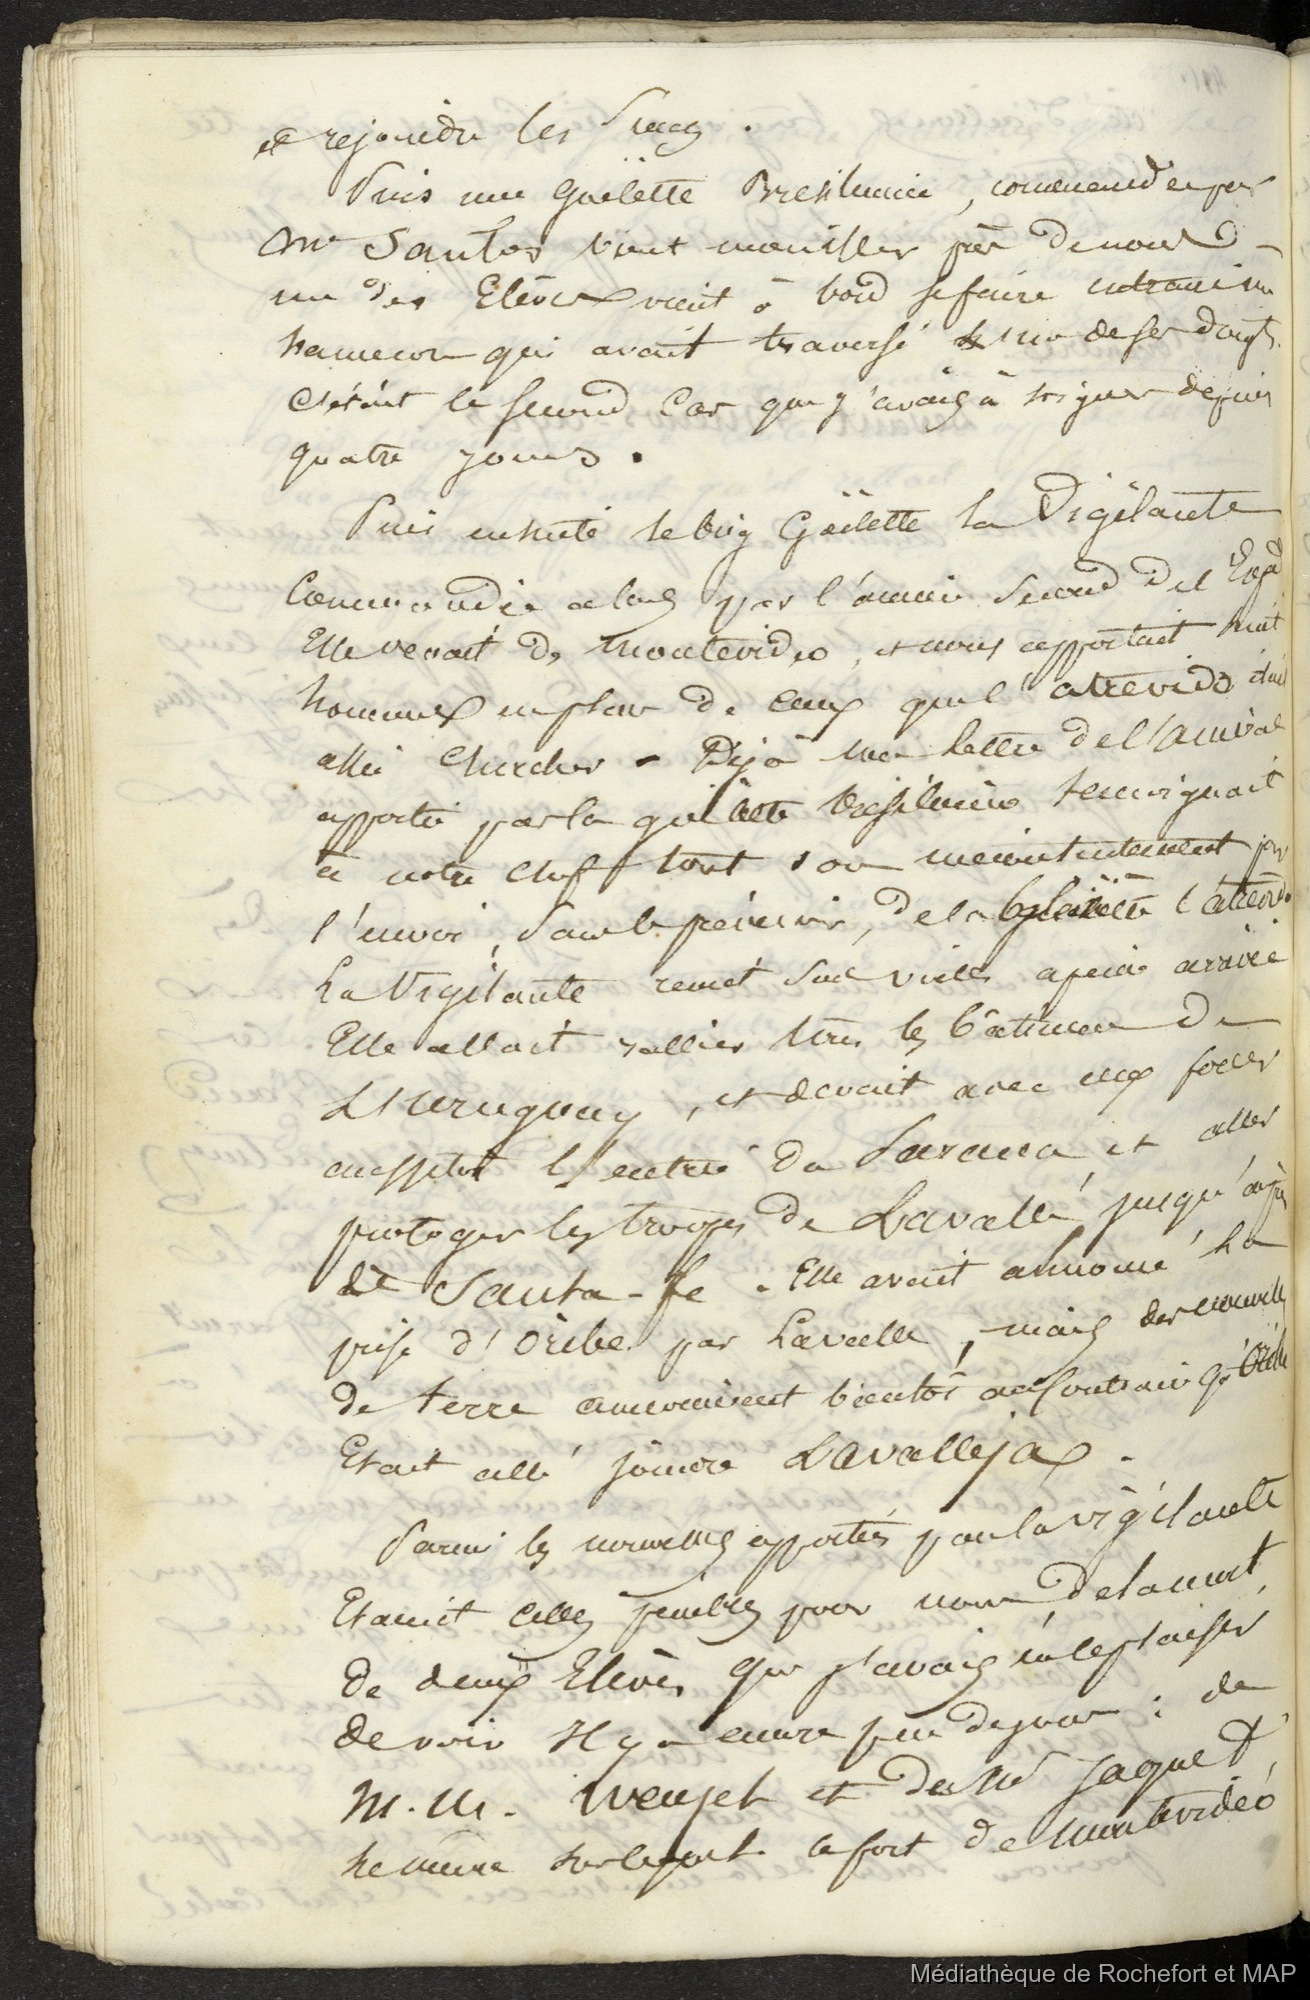 et rejoindre les
Puis une Goëlette Bresilienne, commandée par
Mr Santos vient mouiller près de nous -
un des Elèves vient à bord se faire extraire un
hameçon qui avait traversé un de ses doigts.
c'était le second cas que j'avais à soigner depuis
quatre jours.
Puis ensuite le brig Goëlette la Vigilante
Commandée alors par l'ancien second de l'
Elle venait de Montevideo, et nous apportait huit
hommes en place de ceux que l'atrevida était
allée chercher - Déjà une lettre de l'amiral
apportée par la goëlette brésilienne temoignait
à notre chef tout son mécontentement pour
l'envoi, sans le prévenir, de la Goëlette l'atrevida
La Vigilante remet sous voiles a peine arrivée
Elle allait rallier tous les bâtimens de
L'Uruguay, et devait avec eux forcer
aussitôt l'entrée du Parana et aller
proteger les troupes de Lavalle, jusqu'auprès
de Santa-fe. Elle avait annoncé la
prise d'Oribe par Lavalle, mais des nouvelles
de terre annoncèrent bientôt au contraire qu'Oribe
Etait allé joindre Lavalleja.
Parmi les nouvelles apportées par la vigilante
Etaient celles pénibles pour nous de la mort
de deux Elèves que j'avais eu le plaisir
de voir il y a encore peu de jours : de
M.M. et de Mr Jaquet
le même sur le port le fort de Montevidéo
Médiathèque de Rochefort et MAP